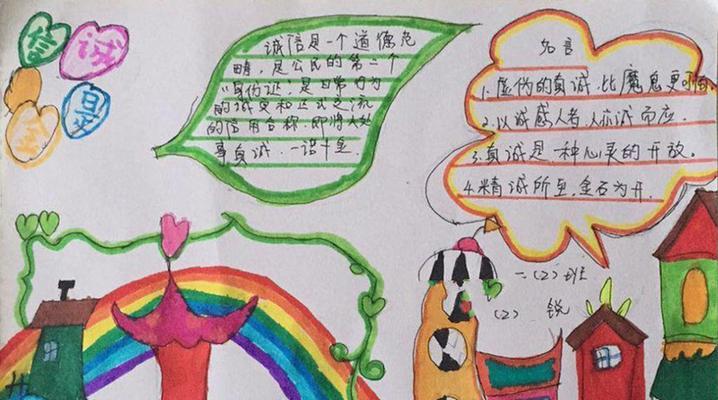 诚
信
是
金
诚信是一个道德范
畴，是公民的第二个
“身份证，是日常行为
的诚实和正式交流
的信用合称，即将人处
事真诚，一诺千金。
名言
1.虚伪的真诚，比魔鬼更可怕
2.以诚感人者，人亦诚而应。
3.真诚是一种心灵的开放。
4.精诚所至，金石为开。
一（2）班
（2） 锐